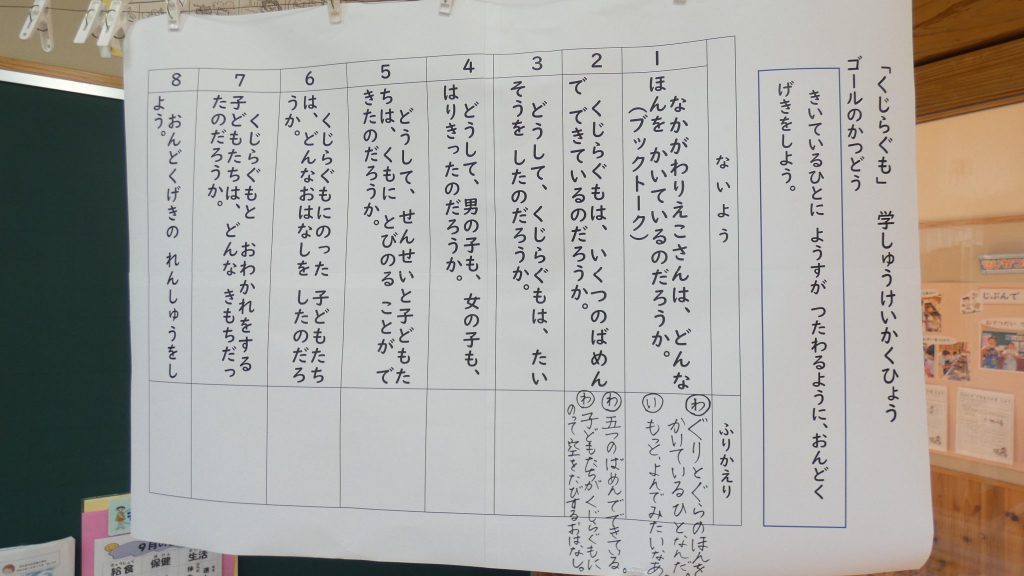 「くじらぐも」 学しゅうけいかくひょう
ゴールのかつどう
きいているひとに ようすが つたわるように、おんどく
げきをしよう。
ないよう
ふりかえり
1
なかがわりえこさんは、どんな
ほんを かいているのだろうか。
(ブックトーク)
わ ぐりとぐらのほんを
かいているひとなんだ。
い もっとよんでみたいなあ。
2
くじらぐもは、いくつのばめん
で できているのだろうか。
わ 五つのばめんでできている。
わ 子どもたちがくじらぐもに
のって空をたびするおはなし。
3
どうして、くじらぐもは、たい
そうを したのだろうか。
4
どうして、男の子も、女の子も、
はりきったのだろうか。
5
どうして、せんせいと子どもた
ちは、くもに とびのる ことが で
きたのだろうか。
6
くじらぐもにのった 子どもたち
は、どんなおはなしを したのだろ
うか。
7
くじらぐもと おわかれをする
子どもたちは、どんな きもちだっ
たのだろうか。
8
おんどくげきの れんしゅうをし
よう。
じぶんで
9月の
給食
保健
生活